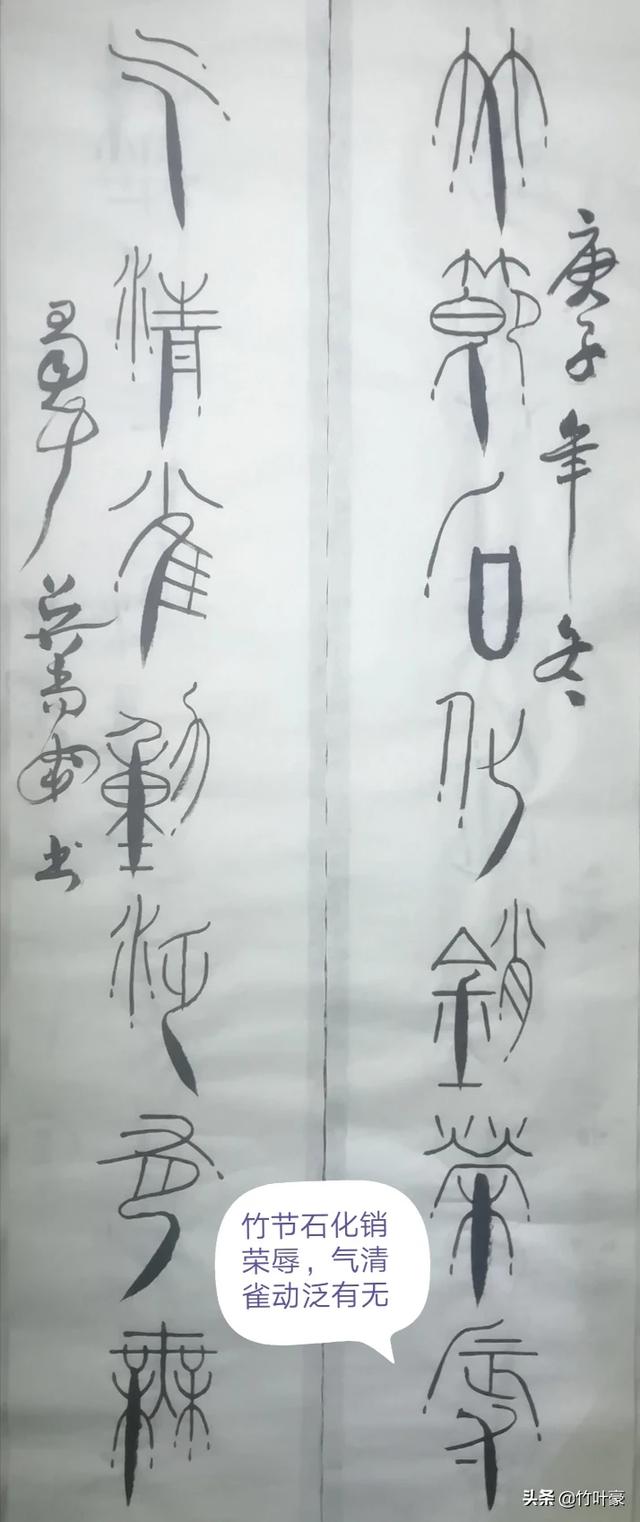 庚子年冬
竹節石化銷榮辱
气清雀動泛有無
蜀中 书
竹节石化销
荣辱，气清
雀动泛有无
头条 @竹叶豪